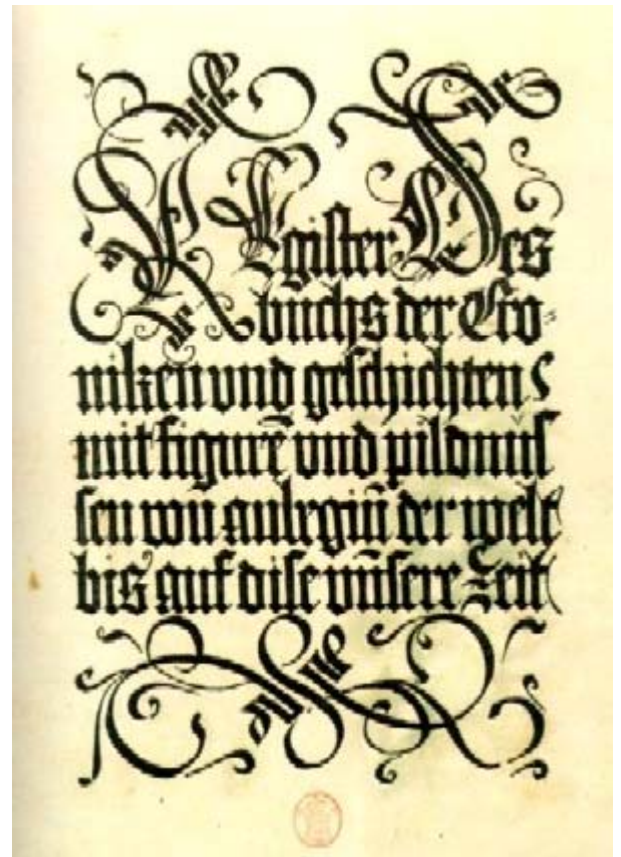 REgister Des
buchs der Cro-
niken und geschichten
mit figurē und pildnus
sen von anbegiñ der welt
bis auf dise vnsere Zeit